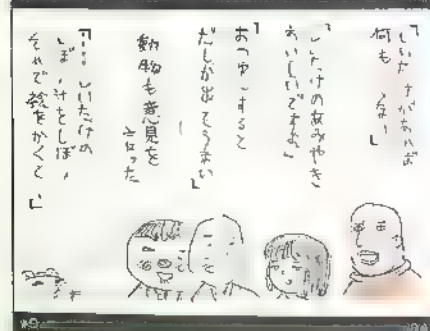 「しいたけがあれば
何も
「しいたけのあみやき
おいしいですよ」
「おつゆにすると
だしが出てうまい」
動物も意見を
言った
しいたけの
汁をしぼ
それで絵をかくと